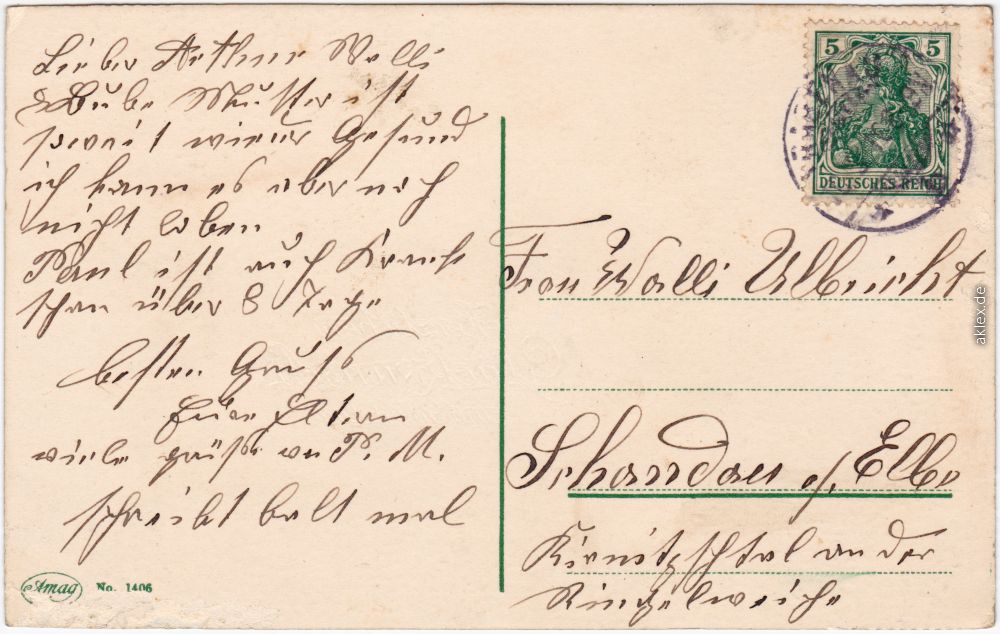 Lieber Arthur Walli
& Bube Mutter ist
soweit wieder Gesund
ich kann es aber noch
nicht loben
Paul ist auch Krank
schon über 8 Tage
besten Gruß
Eure Eltern
viele grüße von P. M.
schreibt balt mal
Amag No. 1406
5 5
DEUTSCHES REICH
Frau Walli Ulbricht
Schandau a/ Elbe
Kirnitzschtal an der
Ringelweiche
aklex.de